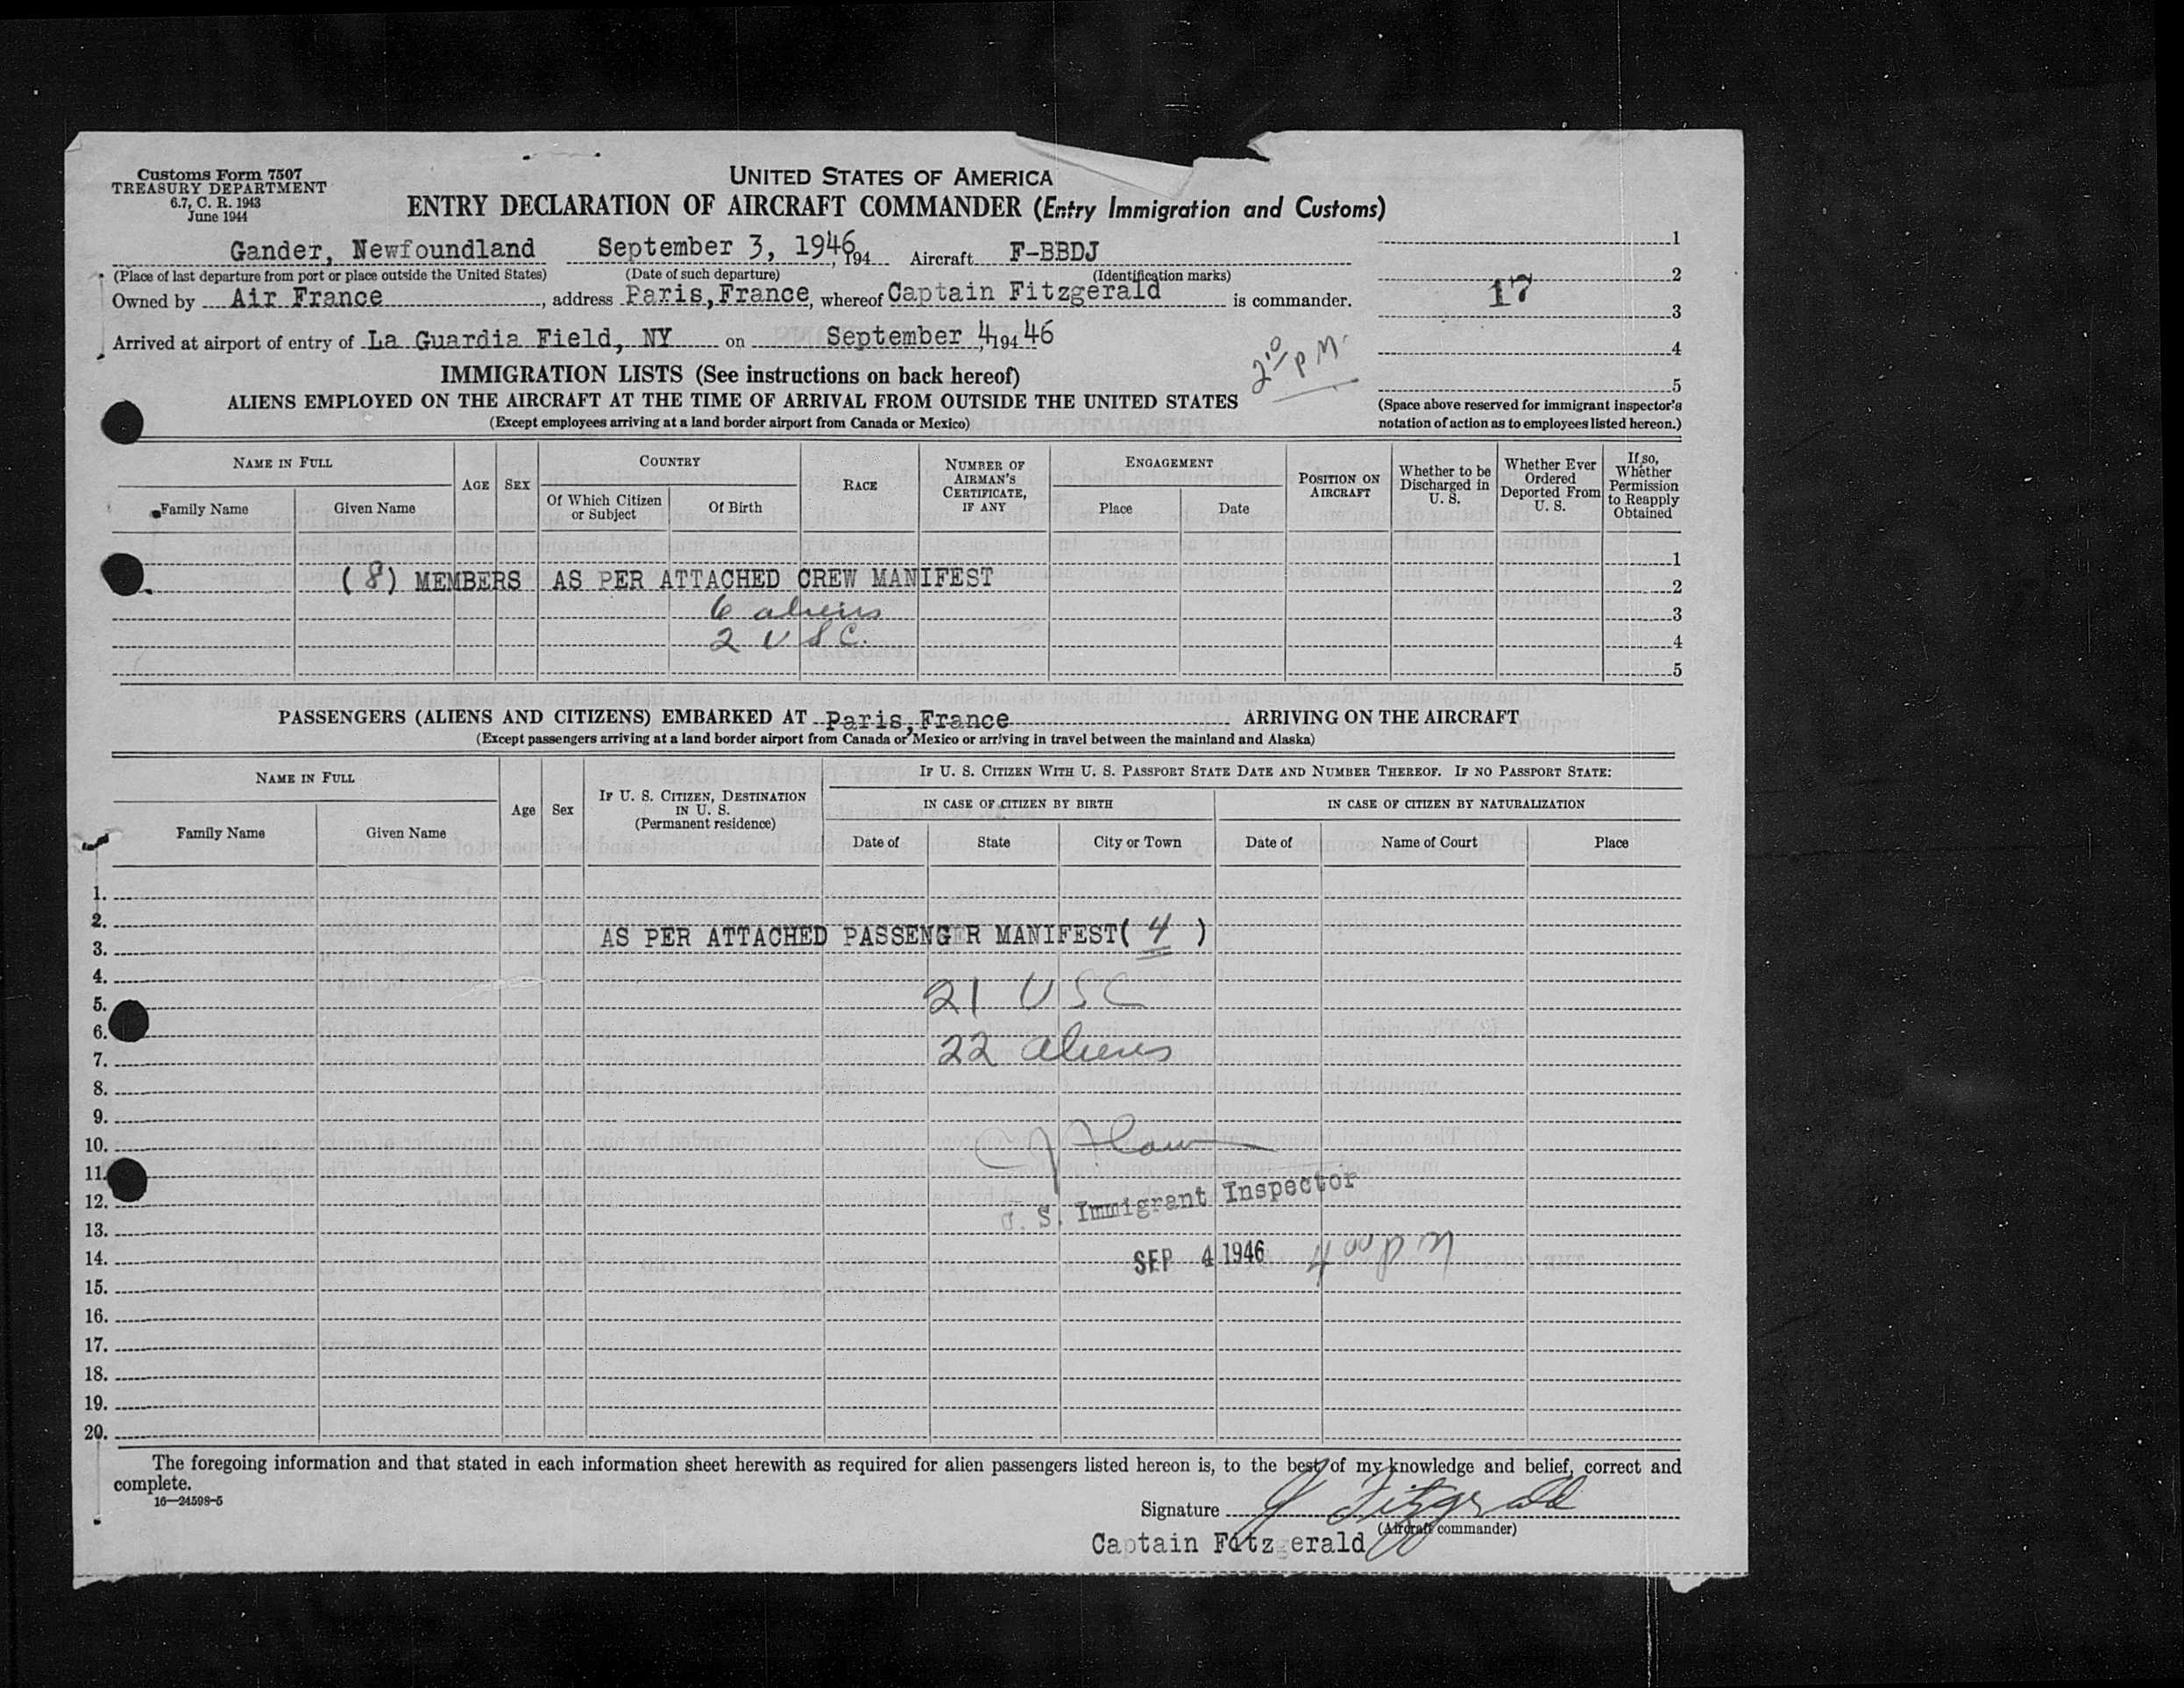 Customs Form 7507
TREASURY DEPARTMENT
6.7, C. R. 1943
June 1944
UNITED STATES OF AMERICA
ENTRY DECLARATION OF AIRCRAFT COMMANDER (Entry Immigration and Customs)
Gander, Newfoundland September 3, 1946, 194 Aircraft F-BBDJ
(Place of last departure from port or place outside the United States) (Date of such departure) (Identification marks)
Owned by Air France, address Paris, France, whereof Captain Fitzgerald is commander.
Arrived at airport of entry of La Guardia Field, NY on September 4, 194 46
1
2
17
3
4
5
(Space above reserved for immigrant inspector's
notation of action as to employees listed hereon.)
2:10 P.M.
IMMIGRATION LISTS (See instructions on back hereof)
ALIENS EMPLOYED ON THE AIRCRAFT AT THE TIME OF ARRIVAL FROM OUTSIDE THE UNITED STATES
(Except employees arriving at a land border airport from Canada or Mexico)
NAME IN FULL
Family Name Given Name
AGE SEX
COUNTRY
Of Which Citizen or Subject Of Birth
RACE
NUMBER OF AIRMAN'S CERTIFICATE, IF ANY
ENGAGEMENT
Place Date
POSITION ON AIRCRAFT
Whether to be Discharged in U. S.
Whether Ever Ordered Deported From U. S.
If so, Whether Permission to Reapply Obtained
1
(8) MEMBERS AS PER ATTACHED CREW MANIFEST 2
6 aliens 3
2 USC. 4
5
PASSENGERS (ALIENS AND CITIZENS) EMBARKED AT Paris, France ARRIVING ON THE AIRCRAFT
(Except passengers arriving at a land border airport from Canada or Mexico or arriving in travel between the mainland and Alaska)
NAME IN FULL
Family Name Given Name
Age Sex
IF U. S. CITIZEN, DESTINATION IN U. S.
(Permanent residence)
IF U. S. CITIZEN WITH U. S. PASSPORT STATE DATE AND NUMBER THEREOF. IF NO PASSPORT STATE:
IN CASE OF CITIZEN BY BIRTH IN CASE OF CITIZEN BY NATURALIZATION
Date of State City or Town Date of Name of Court Place
1.
2.
AS PER ATTACHED PASSENGER MANIFEST( 4 )
3.
4.
5. 21 USC
6.
7. 22 aliens
8.
9.
10.
11.
12. U. S. Immigrant Inspector
13.
14. SEP 4 1946
15.
16.
17.
18.
19.
20.
The foregoing information and that stated in each information sheet herewith as required for alien passengers listed hereon is, to the best of my knowledge and belief, correct and
complete.
16—24598-5
Signature J Fitzgerald
(Aircraft commander)
Captain Fitzgerald